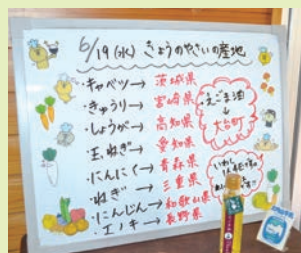 6/19(水) きょうのやさいの産地
・キャベツ→茨城県
・きゅうり→宮崎県
・しょうが→高知県
・玉ねぎ→愛知県
・にんにく→青森県
・ねぎ→三重県
・にんじん→和歌山県
・エノキ→長野県
えごま油
↓
大台町